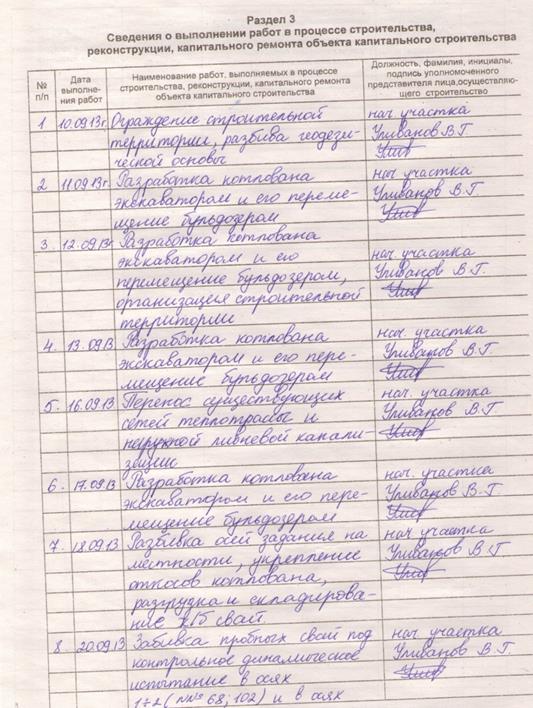 Раздел 3
Сведения о выполнении работ в процессе строительства,
реконструкции, капитального ремонта объекта капитального строительства
№ п/п
Дата выполне-
ния работ
Наименование работ, выполняемых в процессе
строительства, реконструкции, капитального ремонта
объекта капитального строительства
Должность, фамилия, инициалы,
подпись уполномоченного
представителя лица,осуществляю-
щего строительство
1 10.09.13г. Ограждение строительной нач. участка
территории, разбивка геодези- Уливанов В.Г.
ческой основы
2 11.09.13г. Разработка котлована нач. участка
экскаватором и его переме- Уливанов В.Г.
щение бульдозером
3. 12.09.13г Разработка котлована
экскаватором и его нач. участка
перемещение бульдозером, Уливанов В.Г.
организация строительной
территории
4. 13.09.13 Разработка котлована нач. участка
экскаватором и его пере- Уливанов В.Г.
мещение бульдозером
5. 16.09.13 Перенос существующих нач. участка
сетей теплотрассы и Уливанов В.Г.
наружной ливневой канали-
зации
6. 17.09.13 Разработка котлована нач. участка
экскаватором и его пере- Уливанов В.Г
мещение бульдозером
7. 18.09.13 Разбивка осей задания на нач. участка
местности, укрепление Уливанов В.Г
откосов котлована,
разгрузка и складирова-
ние ж/б свай.
8. 20.09.13 Забивка пробных свай под нач. участка
контрольное динамическое Уливанов В.Г.
испытание в осях
1÷2 (№№ 68; 102) и в осях